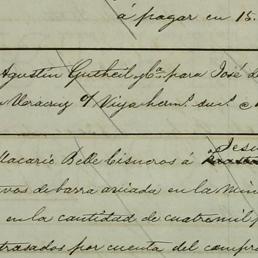 á pagar en 15.
Agustin Gutheil y Cª para José d
Veracruz
Macario Bello Cisneros á Jesu
vos de barra aviada en la min
en la cantidad de cuatro mil p
trasados por cuenta del compra